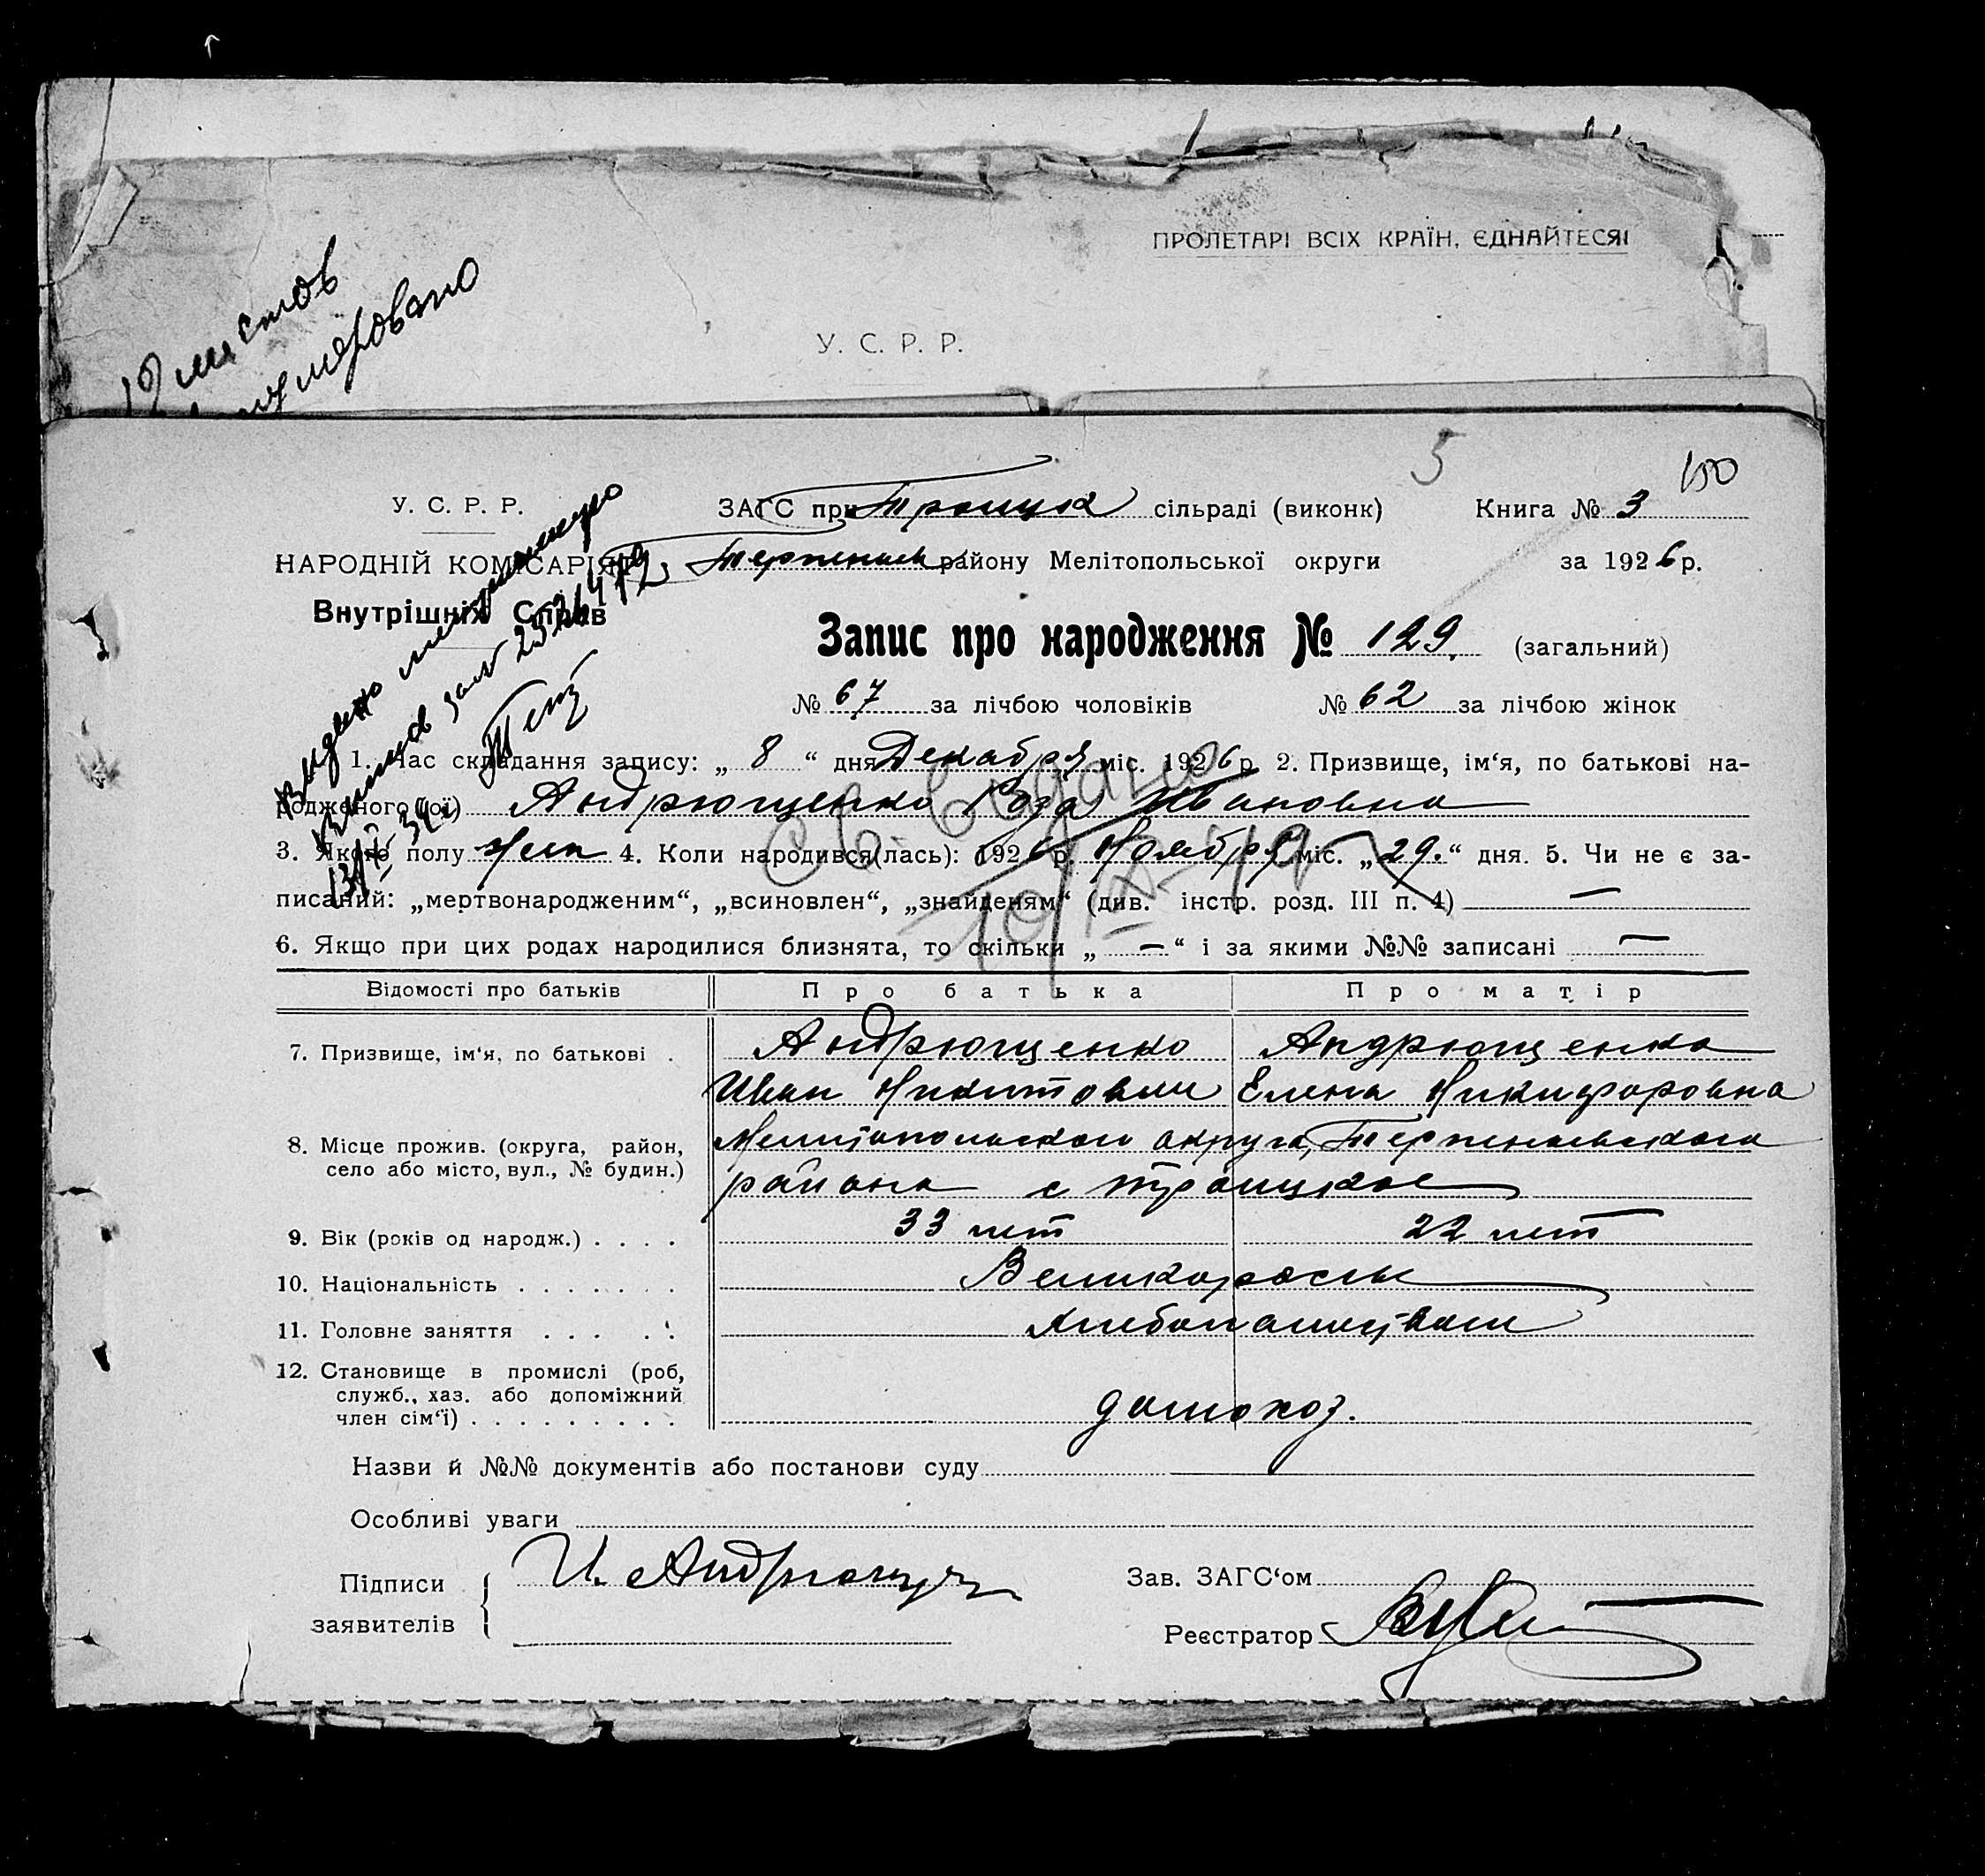 ПРОЛЕТАРІ ВСІХ КРАЇН, ЄДНАЙТЕСЯ!
листов
У. С. Р. Р.
5
150
У. С. Р. Р.
ЗАГС при Троицка сільраді (виконк)
Книга № 3
НАРОДНІЙ КОМІСАРІЯТ
Терпеньев району Мелітопольської округи
за 1926 р.
Внутрішніх Справ
Запис про народження № 129. (загальний)
№ 67 за лічбою чоловіків № 62 за лічбою жінок
1. Час складання запису: „ 8 “ дня Декабря міс. 1926 р. 2. Призвище, ім‘я, по батькові на-
родженого (ої) Андрющенко Роза Ивановна
3. Якого полу жен 4. Коли народився(лась): 1926 р. Ноября міс. „ 29. “ дня. 5. Чи не є за-
писаний: „мертвонародженим“, „всиновлен“, „знайденям“ (див. інстр. розд. III п. 4) —
6. Якщо при цих родах народилися близнята, то скільки „ — “ і за якими №№ записані —
Відомості про батьків
Про батька
Про матір
7. Призвище, ім‘я, по батькові .
Андрющенко
Андрющенко
Иван Никитович
Елена Никифоровна
8. Місце прожив. (округа, район,
село або місто, вул., № будин.)
Мелитопольского округа, Терпеньевского
района с Троицкое
9. Вік (років од народж.) . . . .
33 лет
22 лет
10. Національність . . . . . . .
Великороссы
11. Головне заняття . . . . .
хлебопашество
12. Становище в промислі (роб,
служб., хаз. або допоміжний
член сім‘ї) . . . . . . . . .
домохоз.
Назви й №№ документів або постанови суду
Особливі уваги
Підписи
заявителів
И. Андрющ
Зав. ЗАГС‘ом
Реєстратор